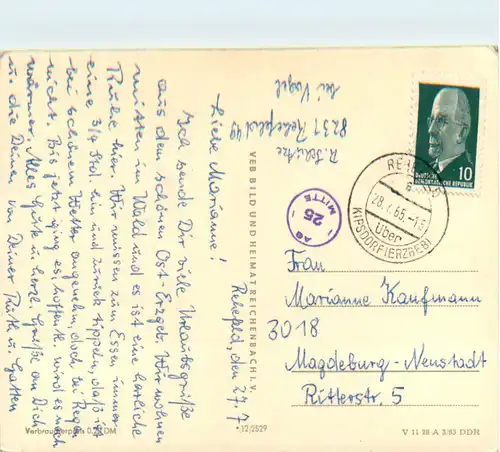 Rehefeld, den 27.7.
Liebe Marianne!
Ich sende Dir viele Urlaubsgrüße
aus dem schönen Ost-Erzgeb. Wir wohnen
mitten im Wald und es ist eine herrliche
Ruhe hier. Wir müssen zum Essen immer
eine 3/4 Std. hin und zurück tippeln, daß ist
bei schönem Wetter angenehm, doch bei Regen
nicht. Bis jetzt ging es, hoffentl. wird es noch
wärmer. Alles Gute u. herzl. Grüße an Dich
u. die Deinen von Deiner Ruth u. Gatten
R. Schütze
8231 Rehefeld 49
bei Vogel
VEB BILD UND HEIMAT REICHENBACH I. V.
DEUTSCHE
DEMOKRATISCHE REPUBLIK
10
28.7.65.-13
über
KIPSDORF (ERZGEB)
AG
25
MITTE
Frau
Marianne Kaufmann
3018
Magdeburg-Neustadt
Ritterstr. 5
Verbraucherpreis DM
12/2529
V 11 28 A 3/63 DDR